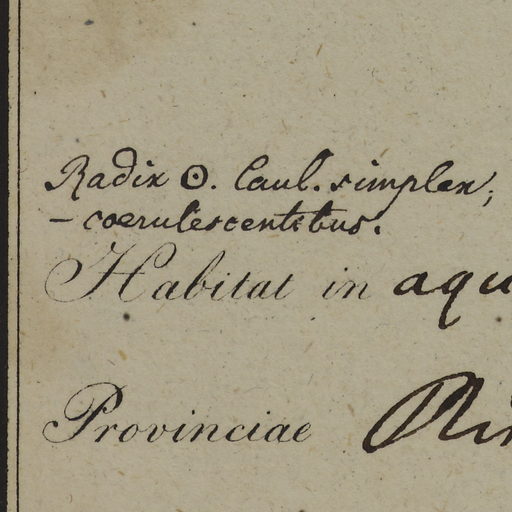 Radix ʘ. Caul. simplex,
- coerulescentibus.
Habitat in aqu
Provinciae